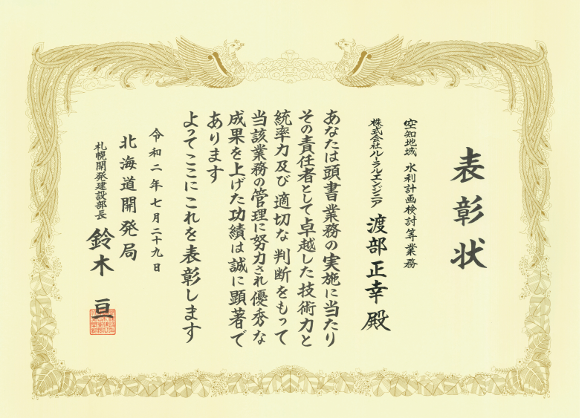 表彰状
空知地域 水利計画検討等業務
株式会社ルーラルエンジニア
渡部正幸 殿
あなたは頭書業務の実施に当たり
その責任者として卓越した技術力と
統率力及び適切な判断をもって
当該業務の管理に努力され優秀な
成果を上げた功績は誠に顕著で
あります
よってここにこれを表彰します
令和二年七月二十九日
北海道開発局
札幌開発建設部長
鈴木 亘